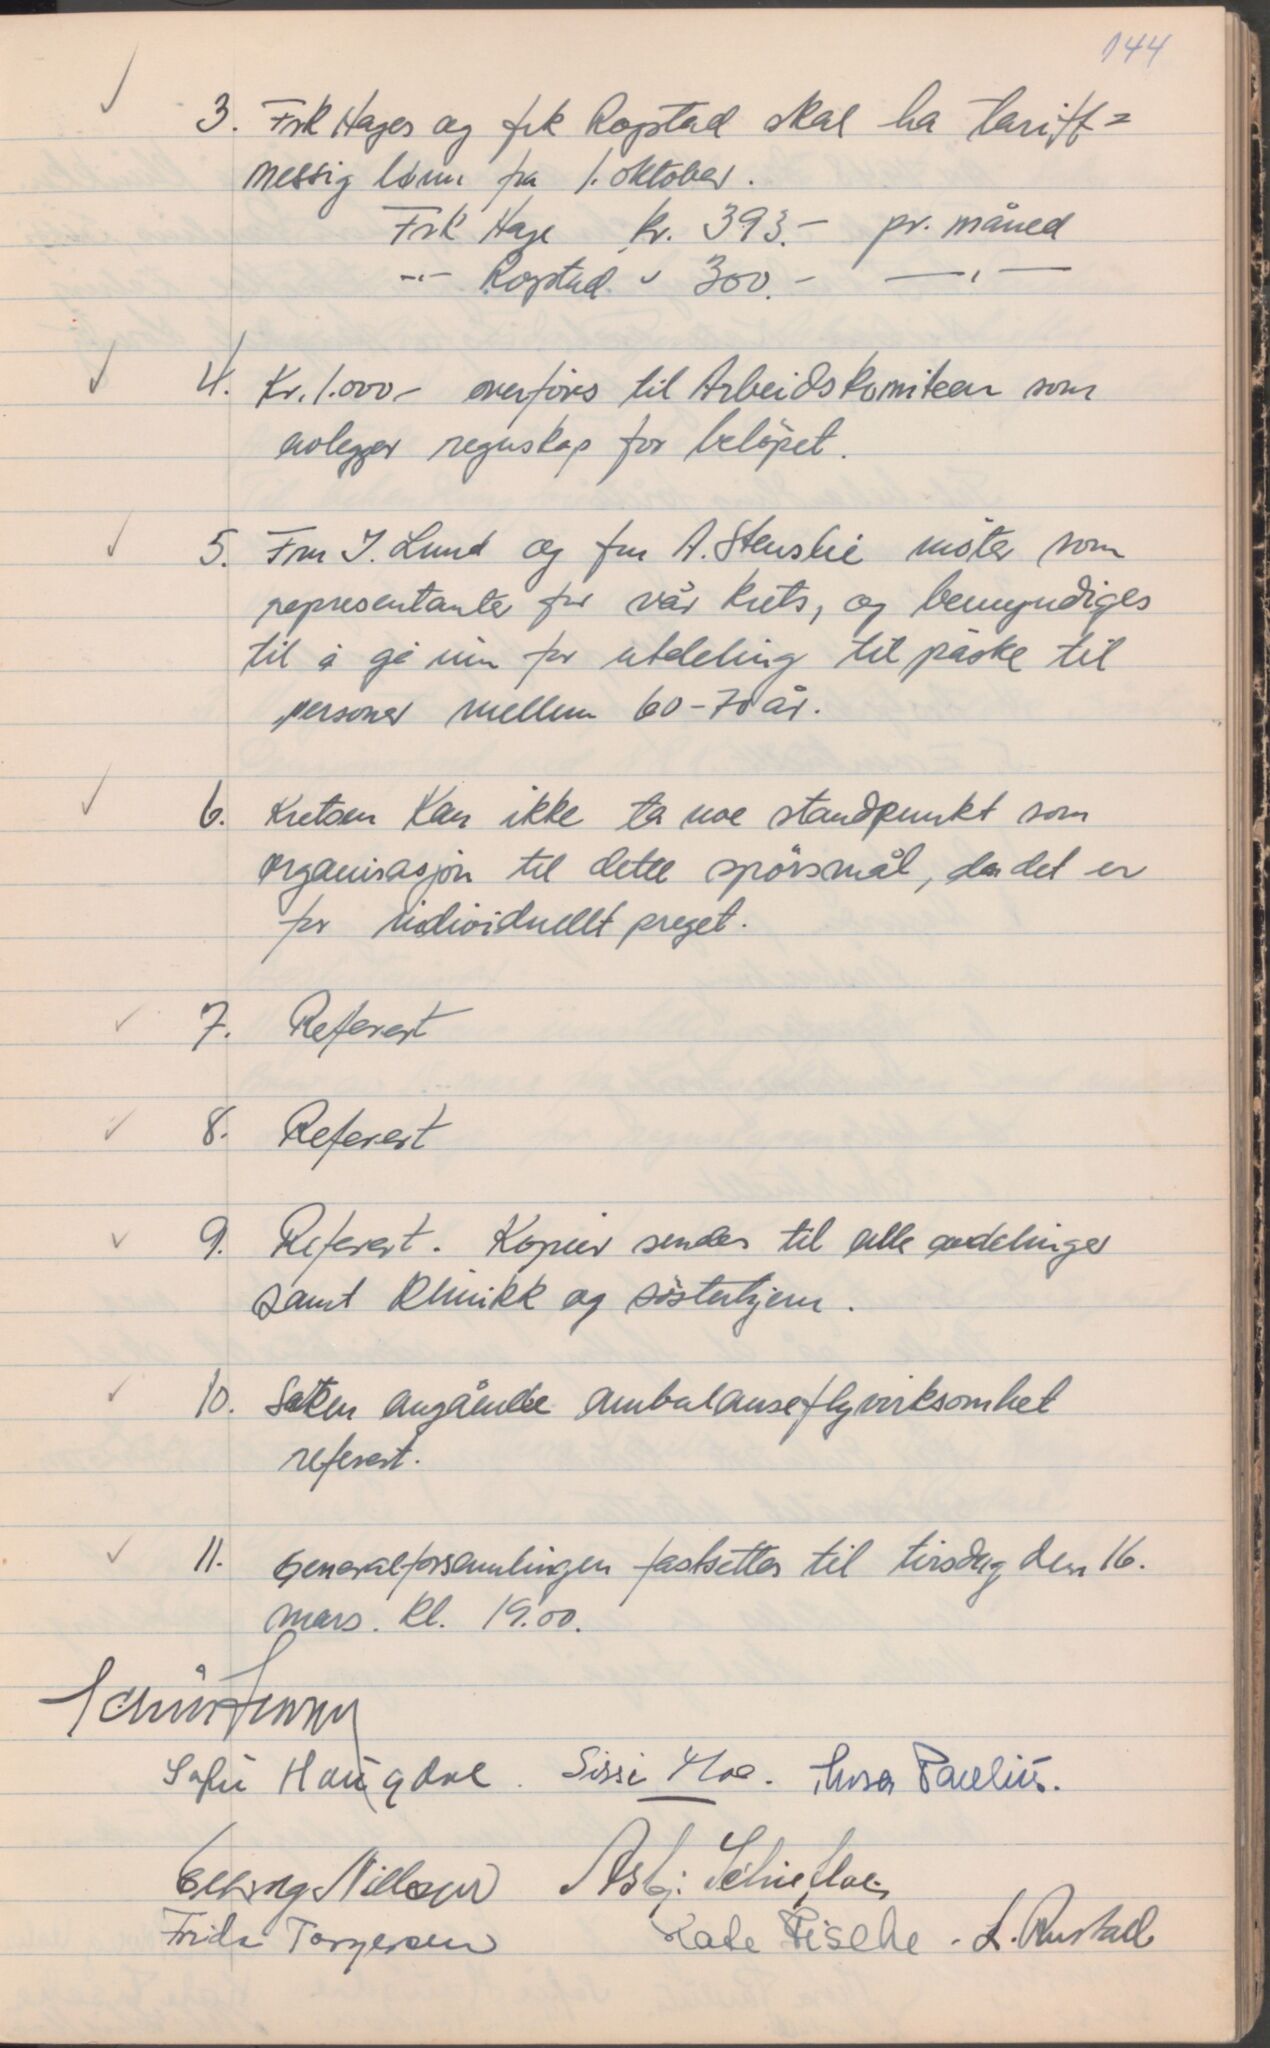 144
3. Frk Hages og frk Rogstad skal ha tariff=
messig lønn fra 1. oktober.
Frk Hage kr. 393.- pr. måned
-"- Rogstad " 300.- —"—
4. Kr. 1.000- overføres til Arbeidskomiteen som
avlegger regnskap for beløpet.
5. Fru J. Lund og fru A. Stenslie møter som
representanter for vår krets, og bemyndiges
til å gå inn for utdeling til påske til
personer mellem 60-70 år.
6. Kretsen kan ikke ta noe standpunkt som
organisasjon til dette spørsmål, da det er
for individuellt preget.
7. Referert
8. Referert
9. Referert. Kopier sendes til alle avdelinger
samt Klinikk og søsterhjem.
10. Saken angående ambulanseflyvirksomhet
referert.
11. Generalforsamlingen fastsettes til tirsdag den 16.
mars. kl. 19.00.
Sofie Haugdal. Sissi Moe. Paulius.
Nilsen Asbj.
Frida Torgersen Kate Fische. L. Rustad